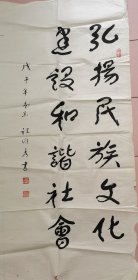 弘揚民族文化
建設和諧社會
戊子年
書